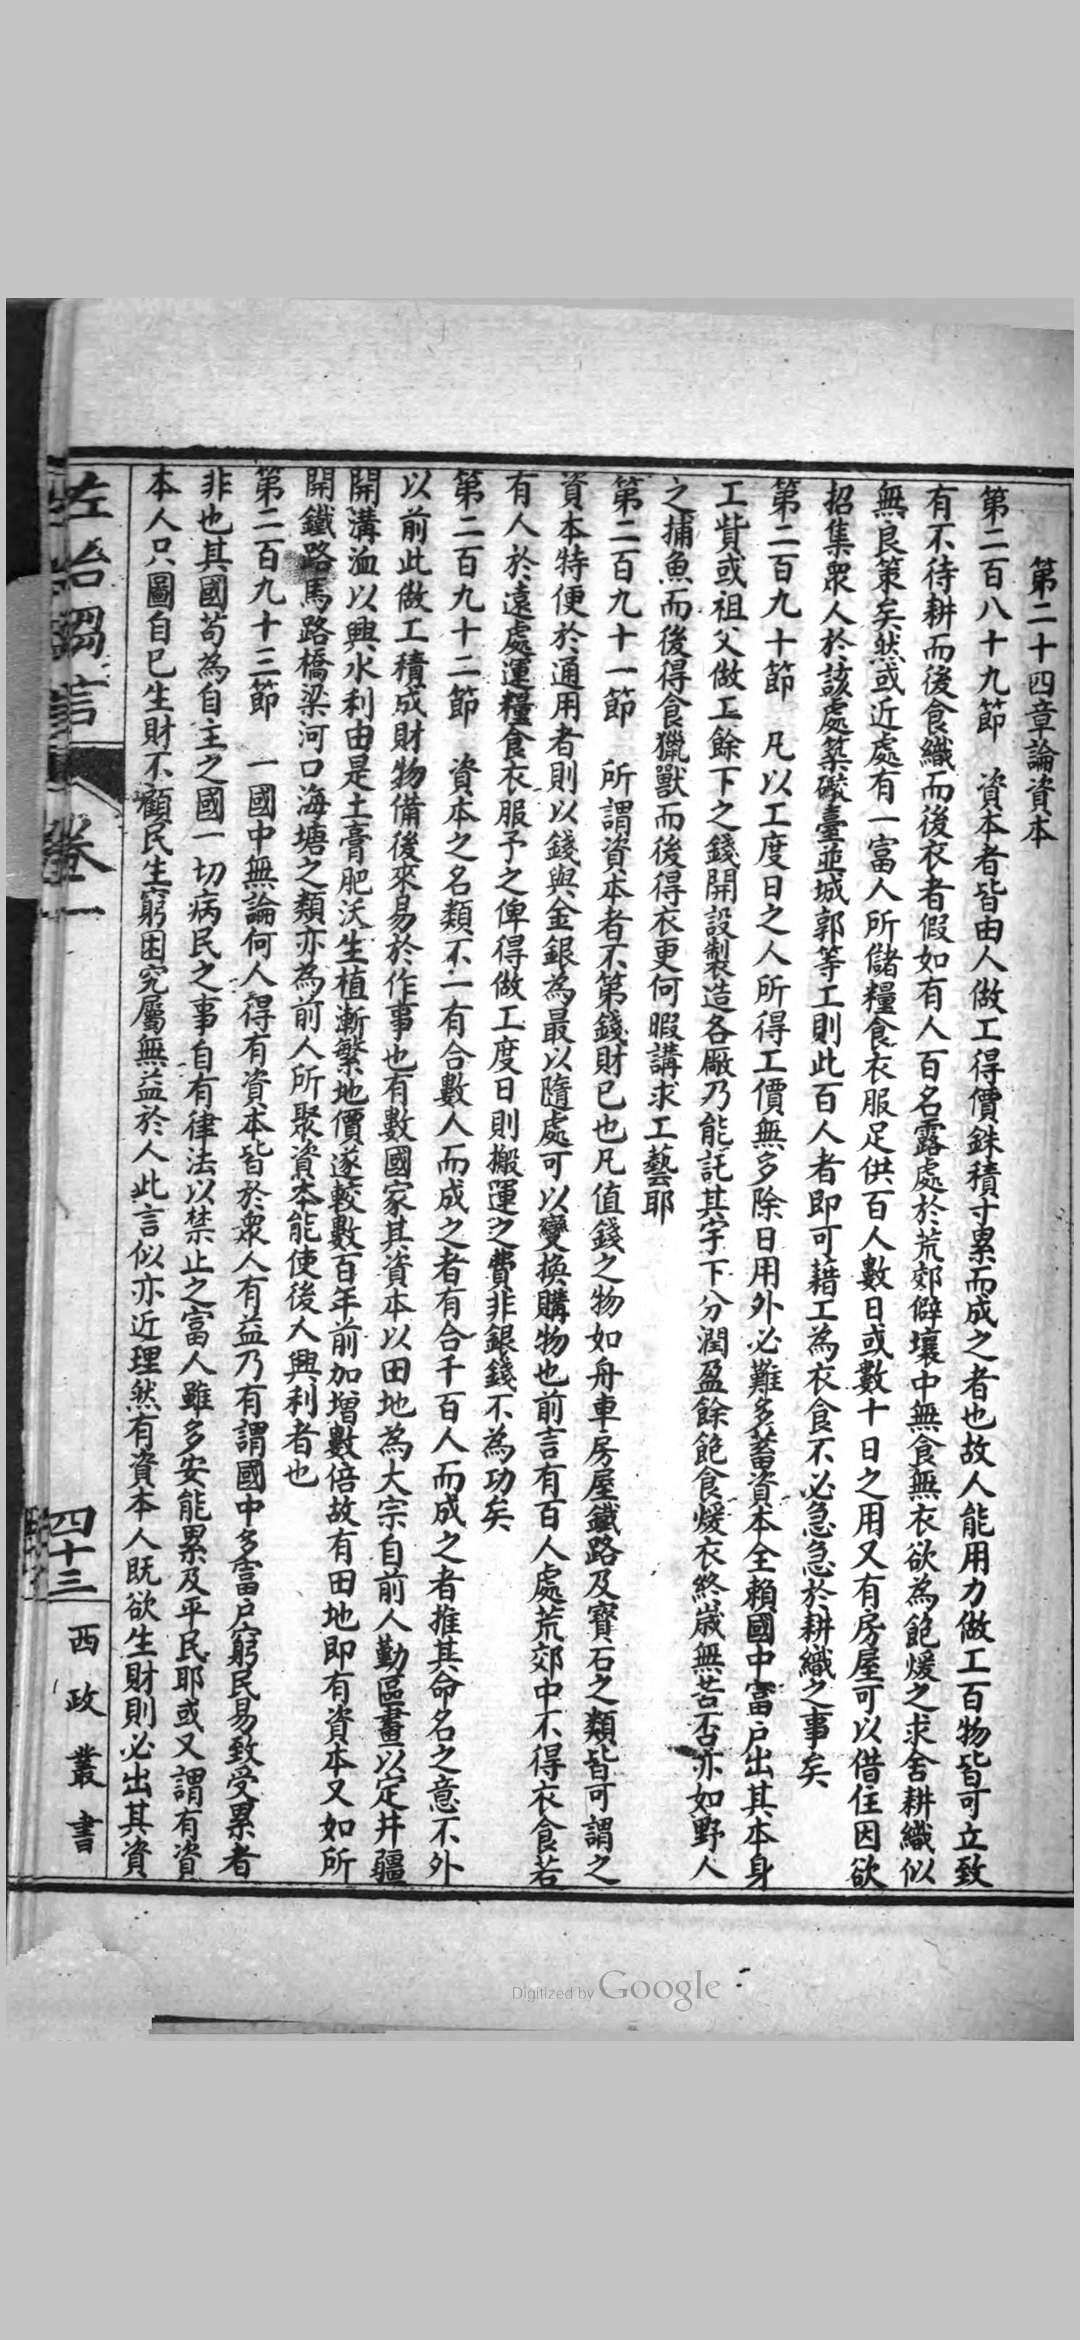 第二十四章論資本
第二百八十九節　資本者皆由人做工得價銖積寸累而成之者也故人能用力做工百物皆可立致
有不待耕而後食織而後衣者假如有人百名露處於荒郊僻壤中無食無衣欲為飽煖之求舍耕織似
無良策矣然或近處有一富人所儲糧食衣服足供百人數日或數十日之用又有房屋可以借住因欲
招集衆人於該處築礮臺並城郭等工則此百人者即可藉工為衣食不必急急於耕織之事矣
第二百九十節　凡以工度日之人所得工價無多除日用外必難多蓄資本全賴國中富户出其本身
工貲或祖父做工餘下之錢開設製造各厰乃能託其宇下分潤盈餘飽食煖衣終歲無苦否亦如野人
之捕魚而後得食獵獸而後得衣更何暇講求工藝耶
第二百九十一節　所謂資本者不第錢財已也凡值錢之物如舟車房屋鐵路及寶石之類皆可謂之
資本特便於通用者則以錢與金銀為最以隨處可以變換購物也前言有百人處荒郊中不得衣食若
有人於遠處運糧食衣服予之俾得做工度日則搬運之費非銀錢不為功矣
第二百九十二節　資本之名類不一有合數人而成之者有合千百人而成之者推其命名之意不外
以前此做工積成財物備後來易於作事也有數國家其資本以田地為大宗自前人勤區畫以定井疆
開溝洫以興水利由是土膏肥沃生植漸繁地價遂較數百年前加增數倍故有田地即有資本又如所
開鐵路馬路橋梁河口海塘之類亦為前人所聚資本能使後人興利者也
第二百九十三節　一國中無論何人得有資本皆於衆人有益乃有謂國中多富户窮民易致受累者
非也其國苟為自主之國一切病民之事自有律法以禁止之富人雖多安能累及平民耶或又謂有資
本人只圖自己生財不顧民生窮困究屬無益於人此言似亦近理然有資本人既欲生財則必出其資
佐治芻言　卷一
四十三
西政叢書
Digitized by Google